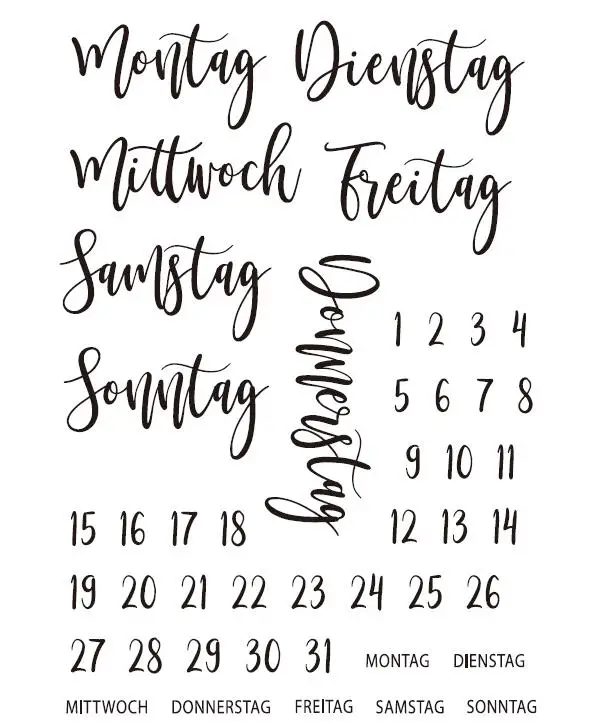 Montag Dienstag
Mittwoch Freitag
Samstag
Donnerstag
1 2 3 4
Sonntag
5 6 7 8
9 10 11
15 16 17 18
12 13 14
19 20 21 22 23 24 25 26
27 28 29 30 31 MONTAG DIENSTAG
MITTWOCH DONNERSTAG FREITAG SAMSTAG SONNTAG